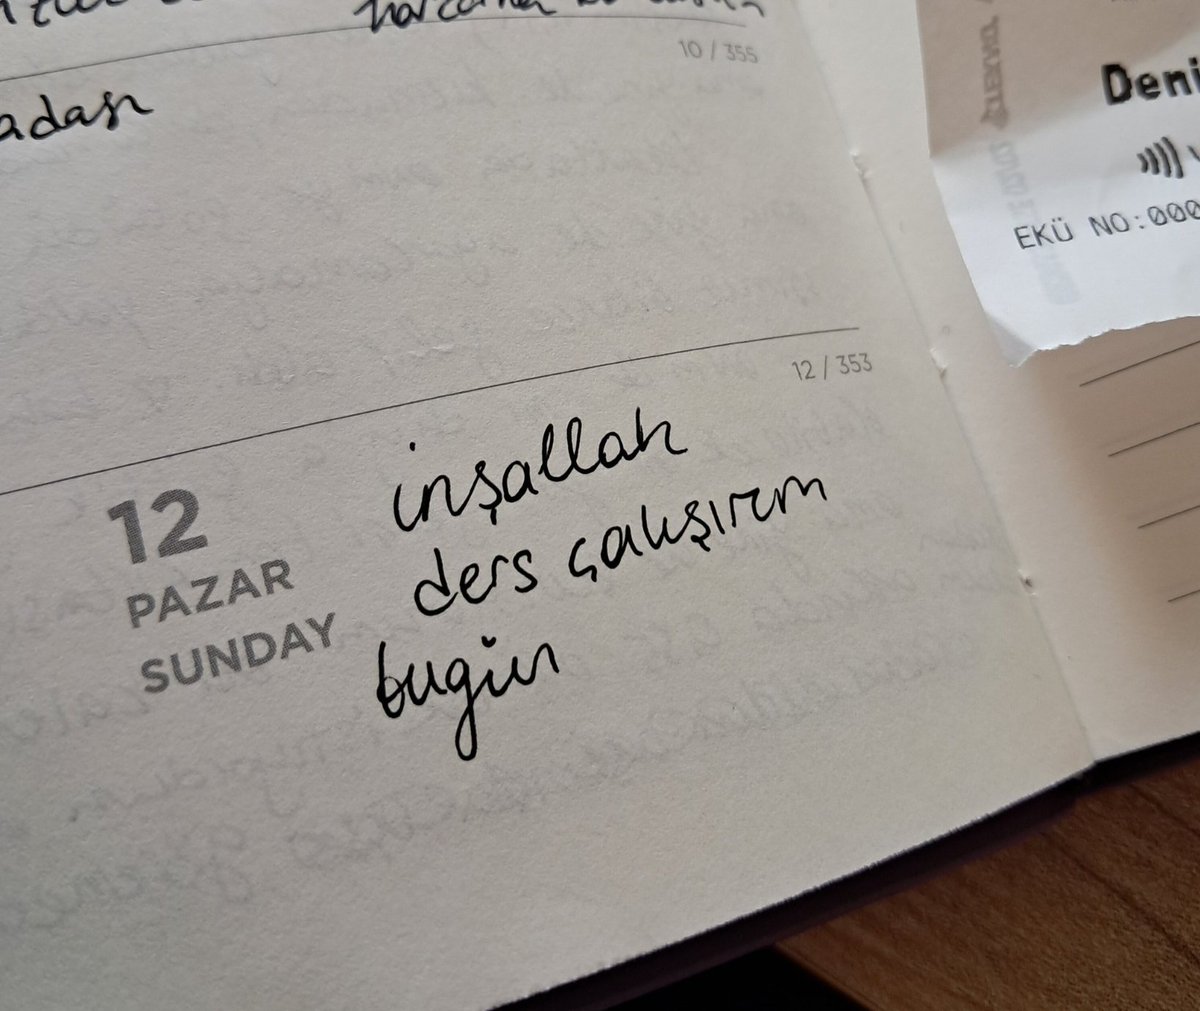 10 / 355
adaşı
Deni
EKÜ NO:000
12 / 353
12
PAZAR
SUNDAY
inşallah
ders çalışırım
bugün